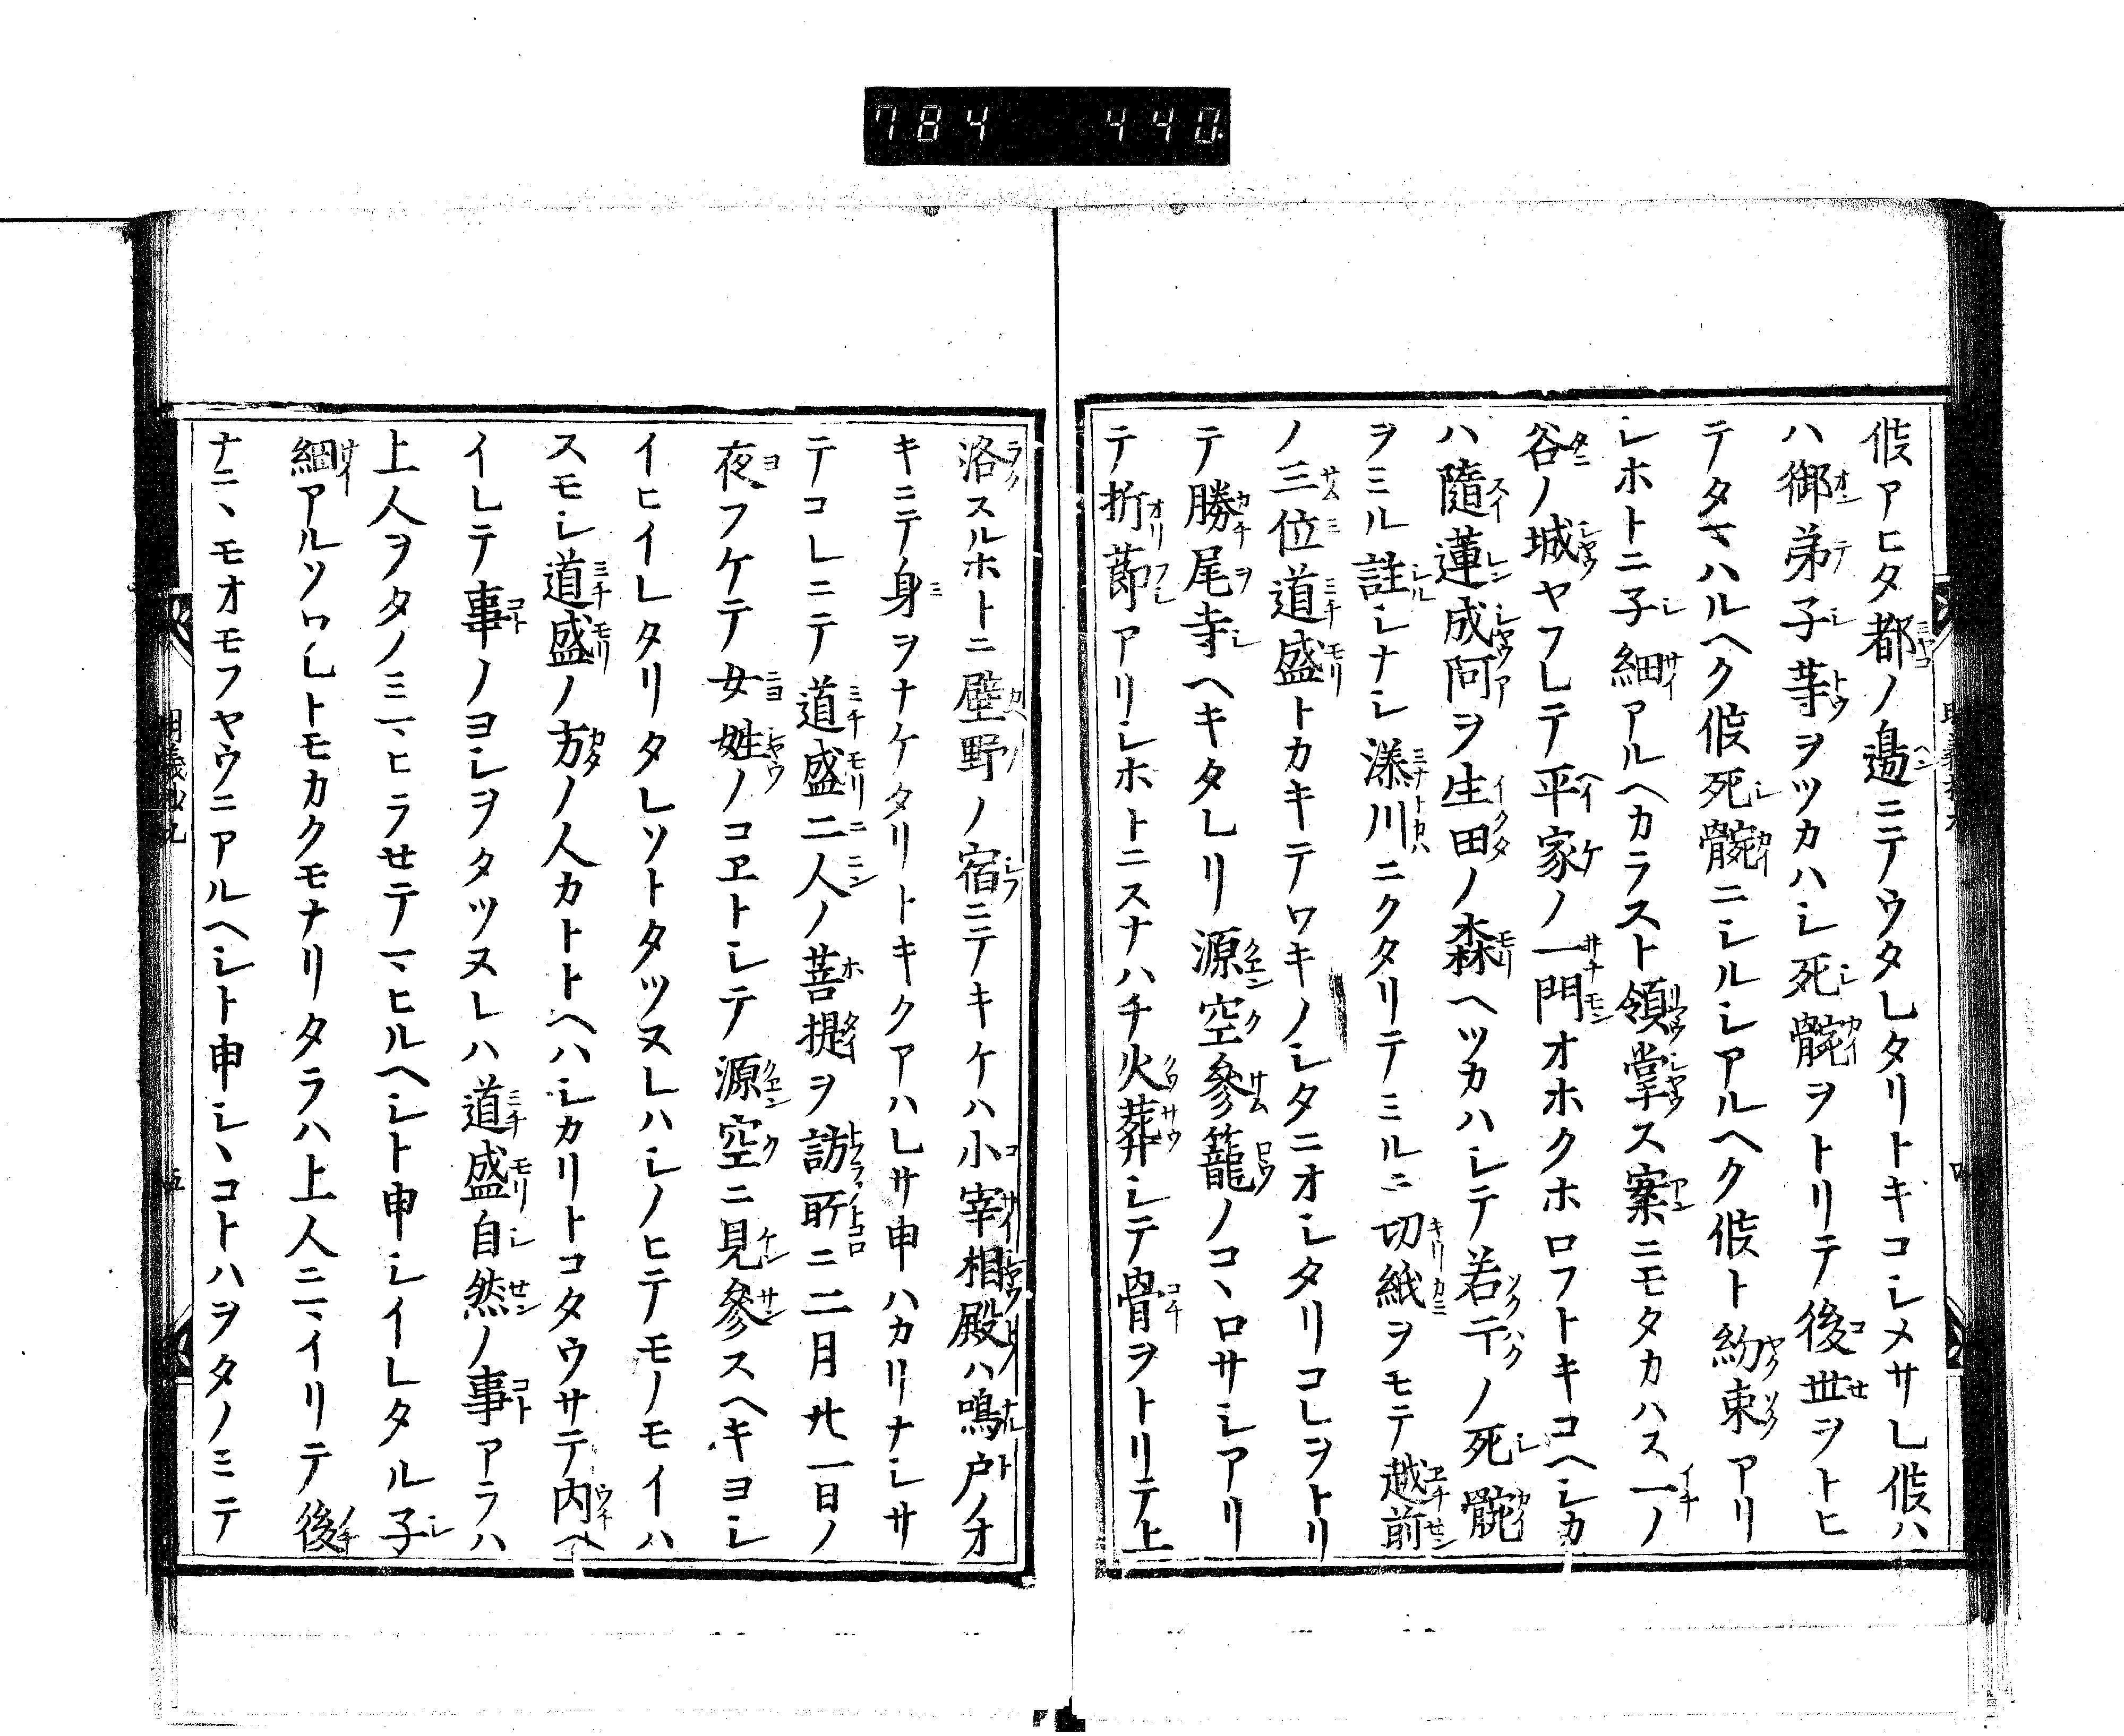 784 440
侅アヒタ都ノ邉ニテウタレタリトキコシメサレ侅ハ
ハ御弟子等ヲツカハシ死骸ヲトリテ後世ヲトヒ
テタマハルヘク侅死骸ニシルシアルヘク侅ト約束アリ
シホトニ子細アルヘカラスト領掌ス案ニモタカハス一ノ
谷ノ城ヤフレテ平家ノ一門オホクホロフトキコヘシカ
ハ隨蓮成阿ヲ生田ノ森ヘツカハシテ若干ノ死骸
ヲミル註シナシ湊川ニクタリテミルニ切紙ヲモテ越前
ノ三位道盛トカキテワキノシタニオシタリコレヲトリ
テ勝尾寺ヘキタレリ源空參籠ノコヽロサシアリ
テ折節アリシホトニスナハチ火葬シテ骨ヲトリテ上
洛スルホトニ壁野ノ宿ニテキケハ小宰相殿ハ鳴户ノオ
キニテ身ヲナケタリトキクアハレサ申ハカリナシサ
テコレニテ道盛二人ノ菩提ヲ訪所ニ二月廿一日ノ
夜フケテ女姓ノコヱトシテ源空ニ見參スヘキヨシ
イヒイレタリタレソトタツヌレハシノヒテモノモイハ
スモシ道盛ノ方ノ人カトトヘハシカリトコタウサテ内ヘ
イレテ事ノヨシヲタツヌレハ道盛自然ノ事アラハ
上人ヲタノミマヒラせテマヒルヘシト申シイレタル子
細アルソワレトモカクモナリタラハ上人ニマイリテ後
ナニヽモオモフヤウニアルヘシト申シヽコトハヲタノミテ